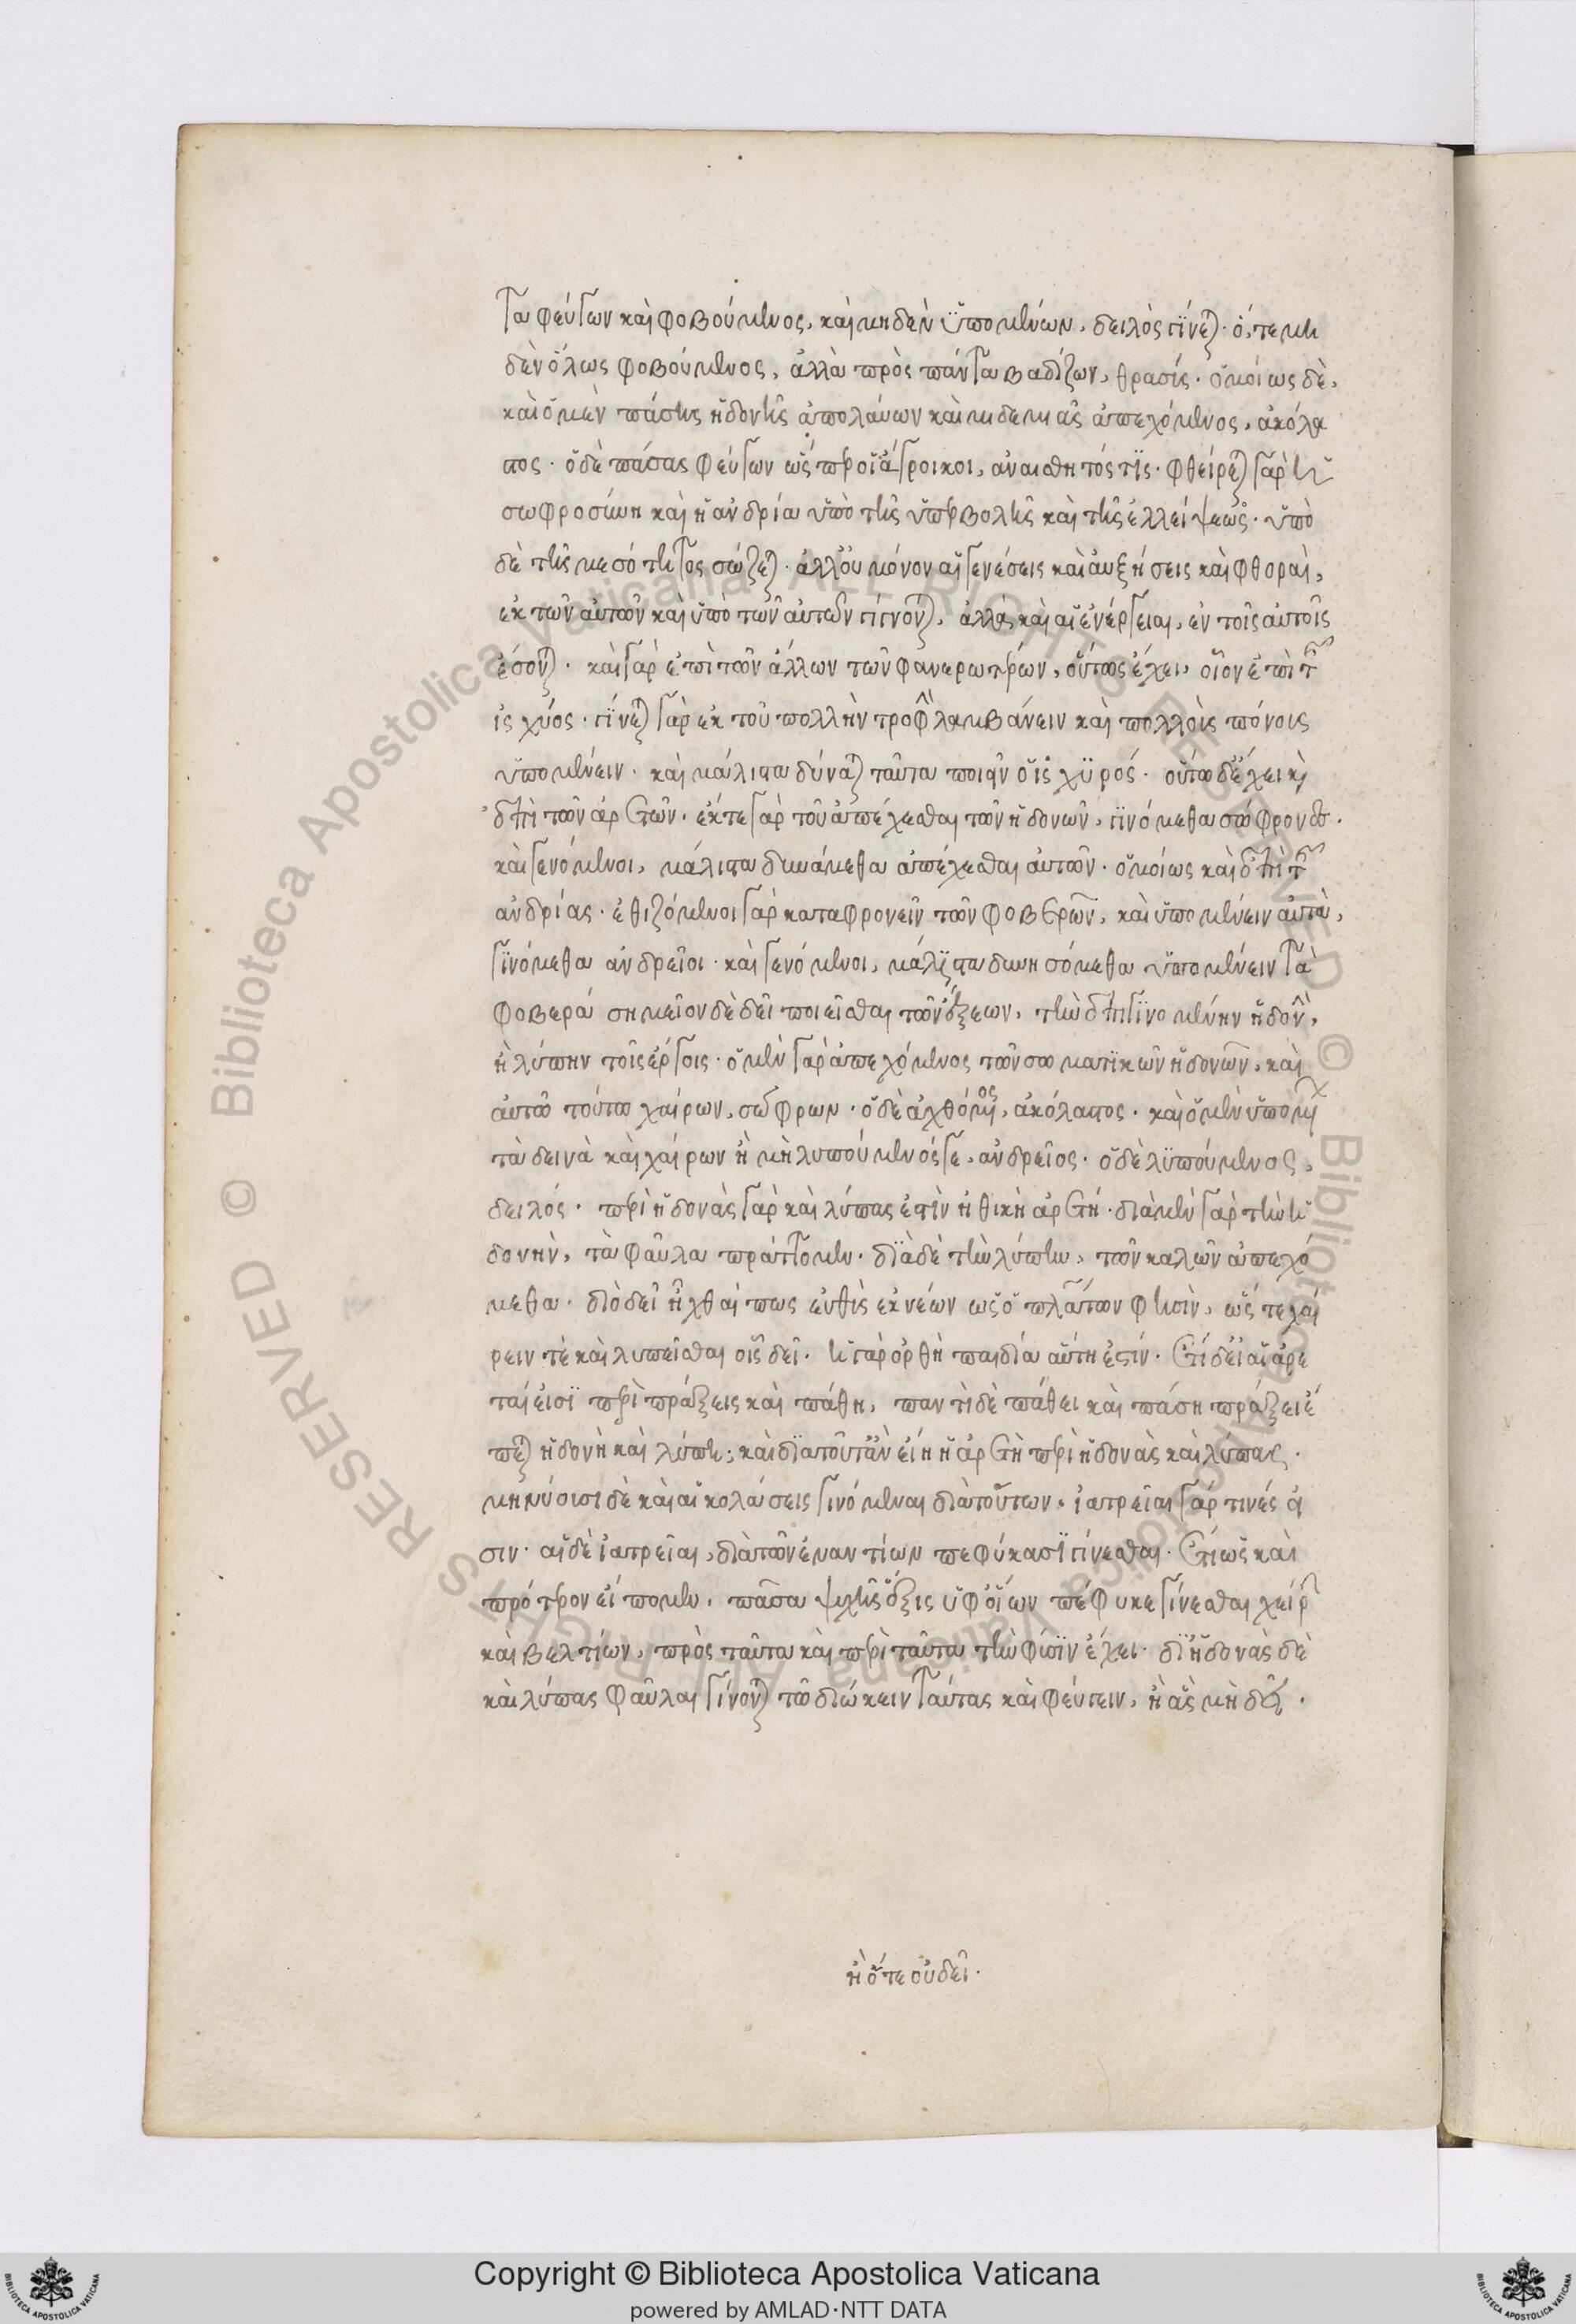 τα φεύγων καὶ φοβούμενος, καὶ μηδὲν ὑπομένων, δειλὸς γίνεται· ὅ, τε μη
δὲν ὅλως φοβούμενος, ἀλλὰ πρὸς πάντα βαδίζων, θρασύς· ὁμοίως δὲ,
καὶ ὁ μὲν πάσης ἡδονῆς ἀπολαύων καὶ μηδεμιᾶς ἀπεχόμενος, ἀκόλα
στος· ὁ δὲ πάσας φεύγων ὥσπερ οἱ ἄγροικοι, ἀναισθητός τις· φθείρεται γὰρ ἡ
σωφροσύνη καὶ ἡ ἀνδρία ὑπὸ τῆς ὑπερβολῆς καὶ τῆς ἐλλείψεως· ὑπὸ
δὲ τῆς μεσότητος σώζεται· ἀλλ' οὐ μόνον αἱ γενέσεις καὶ ἀυξήσεις καὶ φθοραὶ,
ἐκ τῶν αὐτῶν καὶ ὑπὸ τῶν αὐτῶν γίγνονται, ἀλλὰ καὶ αἱ ἐνέργειαι, ἐν τοῖς αὐτοῖς
ἔσονται· καὶ γὰρ ἐπὶ τῶν ἄλλων τῶν φανερωτέρων, οὕτως ἔχει, οἷον ἐπὶ τῆς
ἰσχύος· γίνεται γὰρ ἐκ τοῦ πολλὴν τροφὴν λαμβάνειν καὶ πολλοὺς πόνους
ὑπομένειν· καὶ μάλιστα δύναται ταῦτα ποιεῖν ὁ ἰσχυρός· οὕτω δ' ἔχει καὶ
ἐπὶ τῶν ἀρετῶν· ἔκ τε γὰρ τοῦ ἀπέχεσθαι τῶν ἡδονῶν, γινόμεθα σώφρονες·
καὶ γενόμενοι, μάλιστα δυνάμεθα ἀπέχεσθαι αὐτῶν· ὁμοίως καὶ ἐπὶ τῆς
ἀνδρίας· ἐθιζόμενοι γὰρ καταφρονεῖν τῶν φοβερῶν, καὶ ὑπομένειν αὐτὰ,
γινόμεθα ἀνδρεῖοι· καὶ γενόμενοι, μάλιστα δυνησόμεθα ὑπομένειν τὰ
φοβερά σημεῖον δὲ δεῖ ποιεῖσθαι τῶν ἕξεων, τὴν ἐπιγινομένην ἡδονὴν,
ἢ λύπην τοῖς ἔργοις· ὁ μὲν γὰρ ἀπεχόμενος τῶν σωματικῶν ἡδονῶν, καὶ
αὐτῷ τούτῳ χαίρων, σώφρων· ὁ δὲ ἀχθόμενος, ἀκόλαστος· καὶ ὁ μὲν ὑπομένων
τὰ δεινὰ καὶ χαίρων ἢ μὴ λυπούμενός γε, ἀνδρεῖος· ὁ δὲ λυπούμενος,
δειλός· περὶ ἡδονὰς γὰρ καὶ λύπας ἐστὶν ἡ ἠθικὴ ἀρετή· διὰ μὲν γὰρ τὴν ἡ
δονὴν, τὰ φαῦλα πράττομεν· διὰ δὲ τὴν λύπην, τῶν καλῶν ἀπεχό
μεθα· διὸ δεῖ ἦχθαί πως εὐθὺς ἐκ νέων ὡς ὁ πλάτων φησὶν, ὥστε χαί
ρειν τὲ καὶ λυπεῖσθαι οἷς δεῖ· ἡ γὰρ ὀρθὴ παιδία αὕτη ἐστίν· ἔτι δ' εἰ αἱ ἀρε
ταί εἰσι περὶ πράξεις καὶ πάθη, παντὶ δὲ πάθει καὶ πάση πράξει ἕ
πεται ἡδονὴ καὶ λύπη, καὶ διὰ τοῦτ' ἂν εἴη ἡ ἀρετὴ περὶ ἡδονὰς καὶ λύπας·
μηνύουσι δὲ καὶ αἱ κολάσεις γινόμεναι διὰ τούτων· ἰατρεῖαι γάρ τινές εἰ
σιν· αἱ δὲ ἰατρεῖαι, διὰ τῶν ἐναντίων πεφύκασι γίνεσθαι· ἔτι ὡς καὶ
πρότερον εἴπομεν, πᾶσα ψυχῆς ἕξις ὑφ' οἵων πέφυκε γίνεσθαι χείρων
καὶ βελτίων, πρὸς ταῦτα καὶ περὶ ταῦτα τὴν φύσιν ἔχει· δι' ἡδονὰς δὲ
καὶ λύπας φαῦλαι γίνονται τῷ διώκειν ταύτας καὶ φεύγειν, ἢ ἃς μὴ δεῖ·
ἢ ὅτε οὐ δεῖ·
Copyright © Biblioteca Apostolica Vaticana
powered by AMLAD·NTT DATA